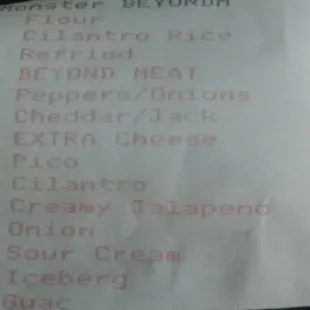 Monster BEYONDM
Flour
Cilantro Rice
Refried
BEYOND MEAT
Peppers/Onions
Cheddar/Jack
EXTRA Cheese
Pico
Cilantro
Creamy Jalapeno
Onion
Sour Cream
Iceberg
Guac